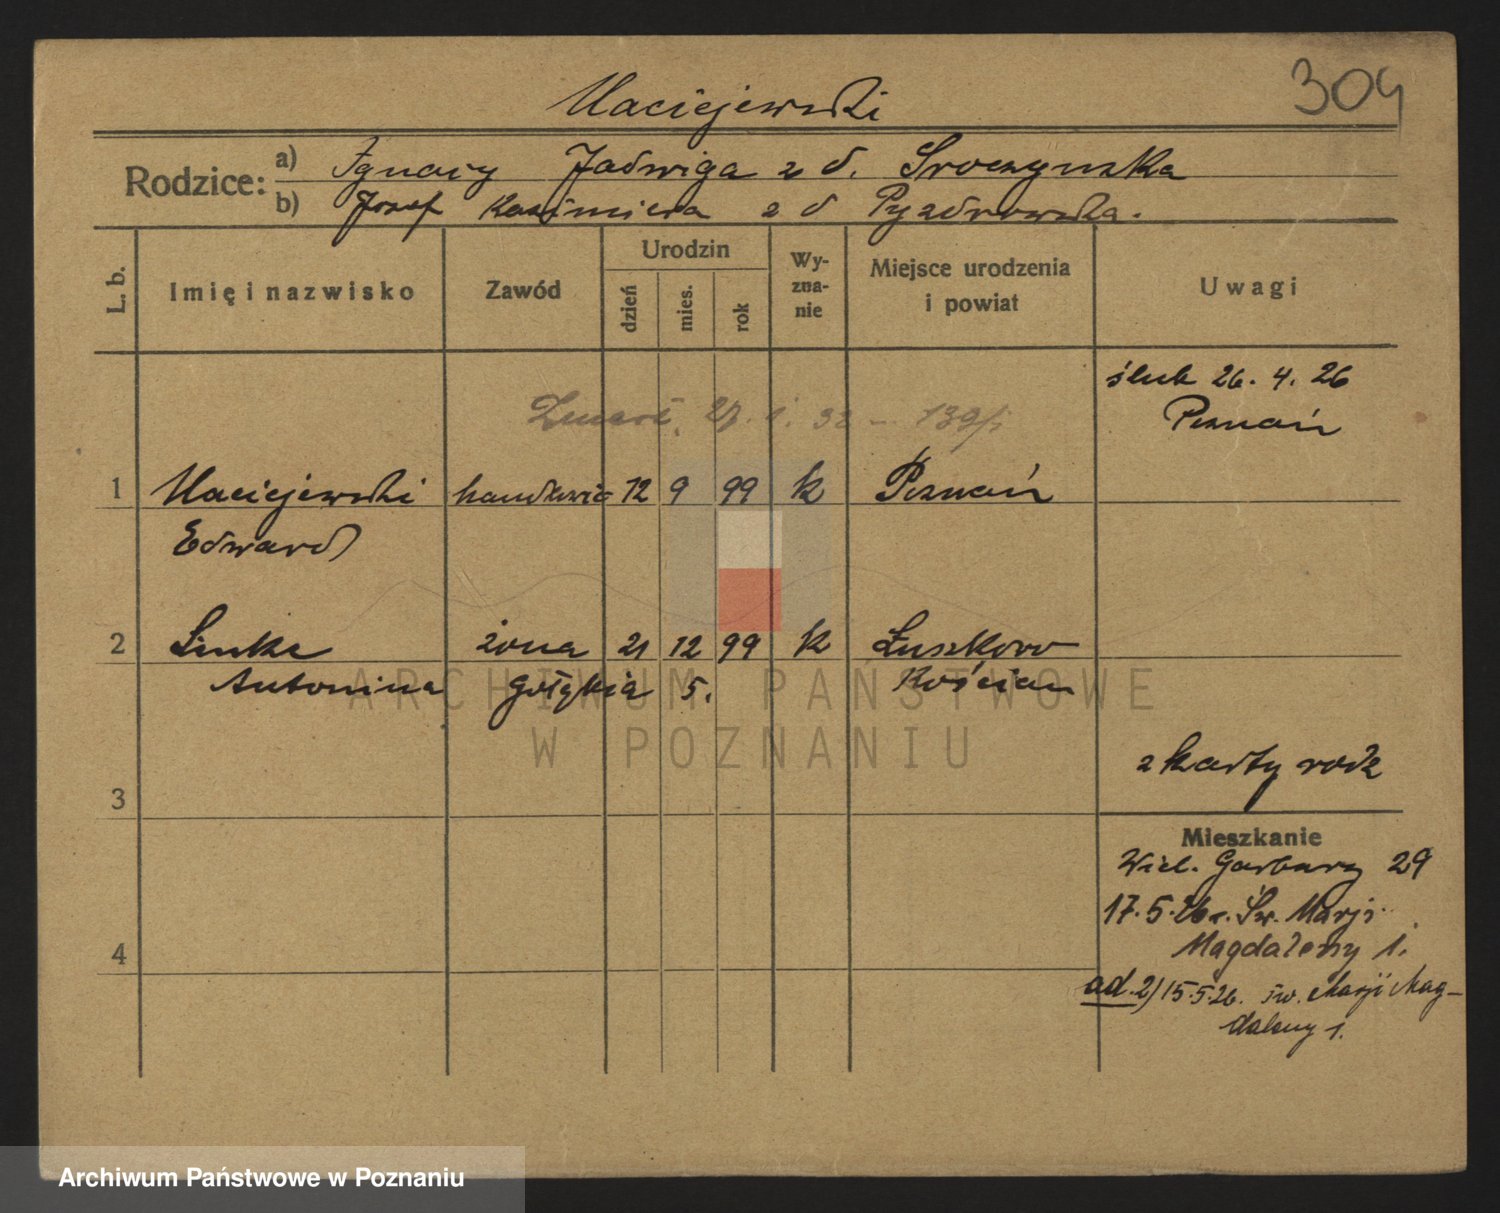 304
Maciejewski
Rodzice: a) Ignacy Jadwiga z d. Sroczyńska
b) Józef Kazimiera z d Pyzdrowska.
L. b.
Imię i nazwisko
Zawód
Urodzin
dzień
mies.
rok
Wy-
zna-
nie
Miejsce urodzenia
i powiat
Uwagi
ślub 26. 4. 26
Poznań
Zmarł 27. 1. 32
1 Maciejewski handlowiec 12 9 99 k Poznań
Edward
2 Linke żona 21 12 99 k Łuszkowo
Antonina Gołębia 5. Kościan
ARCHIWUM PAŃSTWOWE
W POZNANIU
z karty rodz
3
Mieszkanie
Wiel. Garbary 29
17.5.26 r. Św. Marji
4
Magdaleny 1.
ad. 2) 15.5.26. św. Marji Mag-
daleny 1.
Archiwum Państwowe w Poznaniu